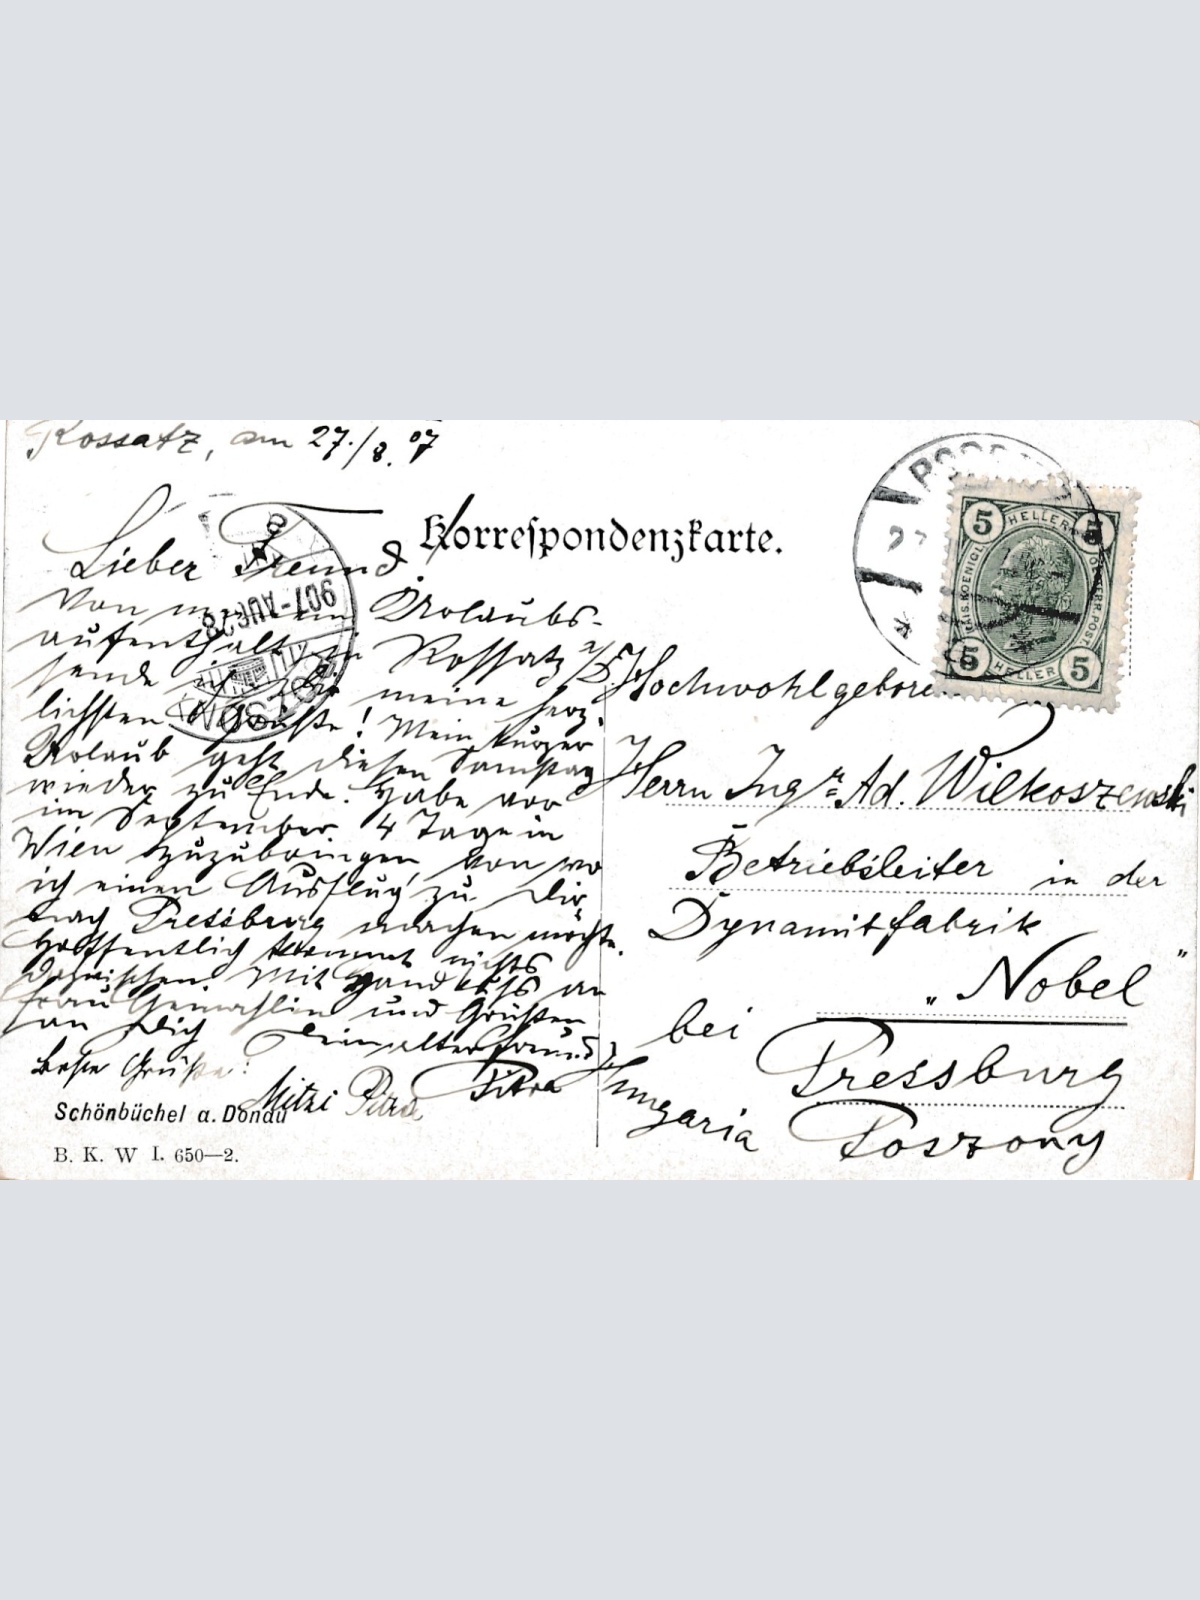 Rossatz, am 27./8. 07
Korrespondenzkarte.
Lieber Freund
Von meinem Urlaubs-
aufenthalt in Rossatz a/D.
sende ich Dir meine herz-
lichsten Grüße! Mein kurzer
Urlaub geht diesen Samstag
wieder zu Ende. Habe vor
im September 4 Tage in
Wien zuzubringen, von wo
ich einen Ausflug zu Dir
nach Pressburg machen möchte.
Hoffentlich kommt nichts
dazwischen. Mit Handkuß an
Frau Gemahlin und Grüßen
an Dich Dein alter Freund
Beste Grüße!
Mitzi Petra
Petra
Schönbüchel a. Donau
B. K. W I. 650—2.
907-AUG 28
POZSONY
5 HELLER 5
KAIS. KOENIGL. OESTERR. POST
5 HELLER 5
Hochwohlgeboren
Herrn Ingr. Ad. Wilkoszewski
Betriebsleiter in der
Dynamitfabrik
„Nobel"
bei Pressburg
Hungaria Poszony